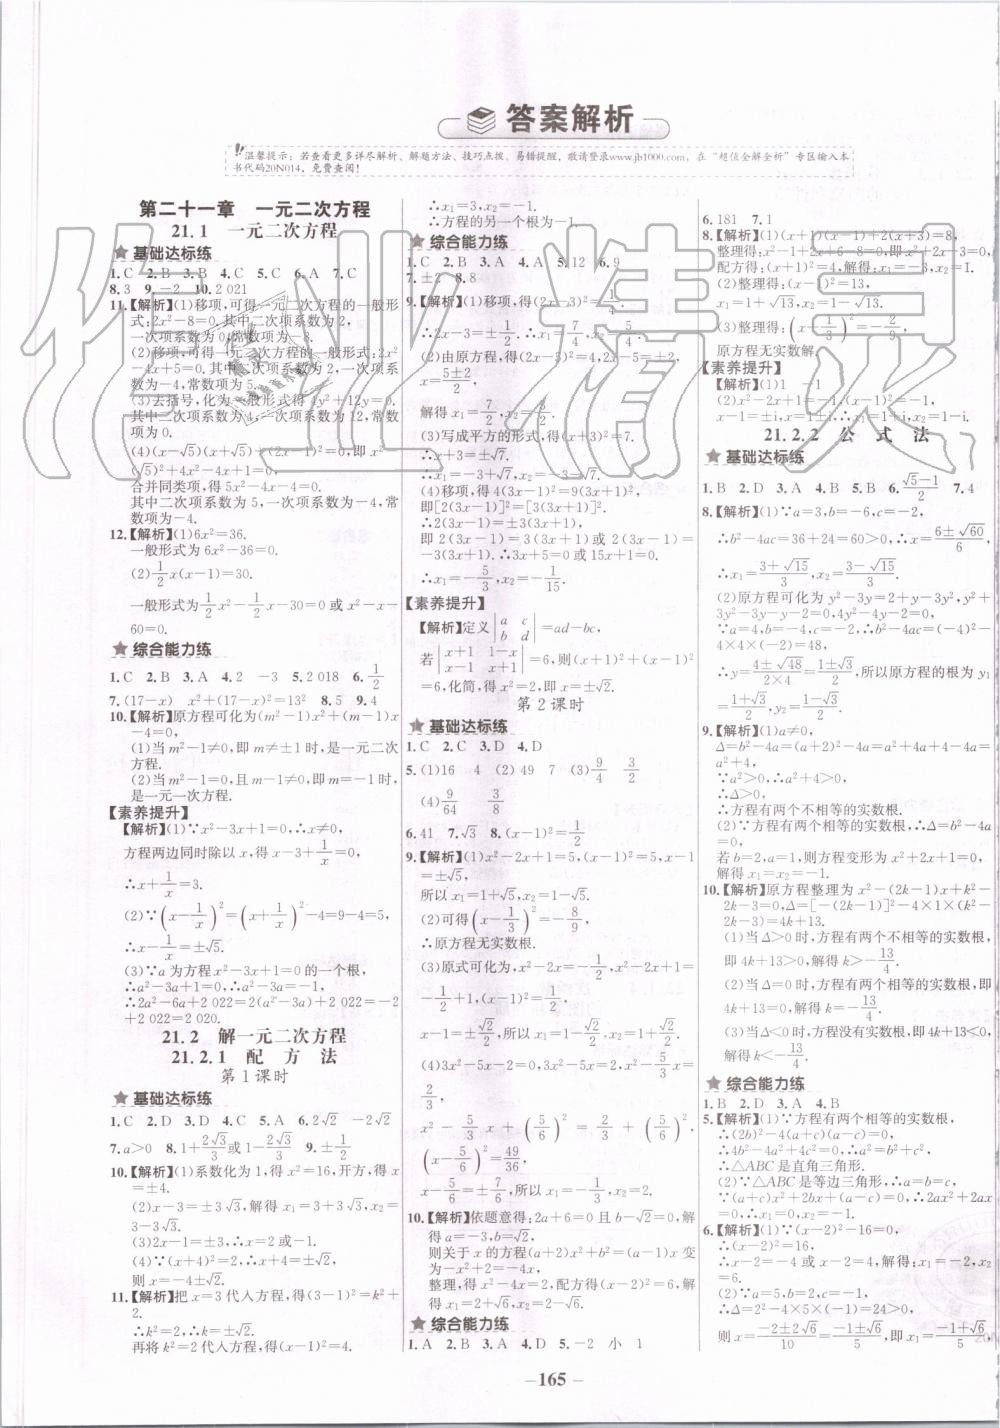 答案解析
温馨提示:若查看更多详尽解析、解题方法、技巧点拨、易错提醒,敬请登录www.jb1000.com,在“超值全解全析”专区输入本
书代码20N014,免费查阅!
第二十一章 一元二次方程
21.1 一元二次方程
★基础达标练
1.C 2.B 3.B 4.C 5.C 6.A 7.C
8.3 9.-2 10.2 021
11.【解析】(1)移项,可得一元二次方程的一般形
式:2x²-8=0.其中二次项系数为2,
一次项系数为0,常数项为-8.
(2)移项,可得一元二次方程的一般形式:2x²
-4x+5=0.其中二次项系数为2,一次项系
数为-4,常数项为5.
(3)去括号,化为一般形式得4y²+12y=0.
其中二次项系数为4,一次项系数为12,常数
项为0.
(4)(x-√5)(x+√5)-(2x-1)²=0,即x²-
(√5)²+4x-4x²-1=0.
合并同类项,得5x²-4x+4=0.
其中二次项系数为5,一次项系数为-4,
常数项为4.
12.【解析】(1)6x²=36.
一般形式为6x²-36=0.
(2)1/2x(x-1)=30.
一般形式为1/2x²-1/2x-30=0或x²-x-
60=0.
★综合能力练
1.C 2.B 3.A 4.2 -3 5.2 018 6.1/2
7.(17-x) x²+(17-x)²=13² 8.5 9.4
10.【解析】原方程可化为(m²-1)x²+(m-1)x
-4=0,
(1)当m²-1≠0,即m≠±1时,是一元二次
方程.
(2)当m²-1=0,且m-1≠0,即m=-1时,
是一元一次方程.
【素养提升】
【解析】(1)∵x²-3x+1=0,∴x≠0,
方程两边同时除以x,得x-3+1/x=0,
∴x+1/x=3.
(2)∵(x-1/x)²=(x+1/x)²-4=9-4=5,
∴x-1/x=±√5.
(3)∵a为方程x²-3x+1=0的一个根,
∴a²-3a+1=0,∴a²-3a=-1,
∴2a²-6a+2 022=2(a²-3a)+2 022=
-2+2 022=2 020.
21.2 解一元二次方程
21.2.1 配方法
第1课时
★基础达标练
1.C 2.D 3.D 4.C 5.A 6.2√2 -2√2
7.a>0 8.1+2√3/3或1-2√3/3 9.±1/2
10.【解析】(1)系数化为1,得x²=16,开方,得x
=±4.
(2)x-3=±3,解得x₁=6,x₂=0.
(3)2x-1=3,∴x=±√2.
(4)∵(x+4)²=2,∴x+4=±√2,
则x=-4±√2.
11.【解析】把x=3代入方程,得(3-1)²=k²+
2.
∴k²=2,∴k=±√2.
再将k²=2代入方程,得(x-1)²=4.
∴x₁=3,x₂=-1.
∴方程的另一个根为-1.
★综合能力练
1.C 2.B 3.A 4.A 5.12 6.9
7.±2 8.8
9.【解析】(1)移项,得(2x-3)²=1/4,
∴2x-3=±1/2,∴x₁=7/4,x₂=5/4.
(2)由原方程,得(2x-5)²=4,2x-5=±2,
x=(5±2)/2,
解得x₁=7/2,x₂=3/2.
(3)写成平方的形式,得(x+3)²=7.
∴x+3=±√7.
∴x₁=-3+√7,x₂=-3-√7.
(4)移项,得4(3x-1)²=9(3x+1)²,
即[2(3x-1)]²=[3(3x+1)]².
∴2(3x-1)=±3(3x+1),
即2(3x-1)=3(3x+1)或2(3x-1)=
-3(3x+1),∴3x+5=0或15x+1=0.
∴x₁=-5/3,x₂=-1/15.
【素养提升】
【解析】定义|a c; b d|=ad-bc,
若|x+1 1-x; x-1 x+1|=6,则(x+1)²+(x-1)²
=6,化简,得x²=2,解得x=±√2.
第2课时
★基础达标练
1.C 2.C 3.D 4.D
5.(1)16 4 (2)49 7 (3)9/4 3/2
(4)9/64 3/8
6.41 7.√3 8.(x-1)²=1/2
9.【解析】(1)x²-2x+1=5,(x-1)²=5,x-1
=±√5,
所以x₁=1+√5,x₂=1-√5.
(2)可得(x-1/3)²=-8/9,
∴原方程无实数根.
(3)原式可化为,x²-2x=-1/2,x²-2x+1=
-1/2+1,
x-1=±√2/2,所以x₁=1-√2/2,x₂=1+√2/2.
(4)3x²-5x=2-4,3x²-5x=-2,x²-5/3x=
-2/3,
x²-5/3x+(5/6)²=2/3+(5/6)²,
(x-5/6)²=49/36,
x-5/6=±7/6,所以x₁=2,x₂=-1/3.
10.【解析】依题意得:2a+6=0且b-√2=0,解
得a=-3,b=√2.
则关于x的方程(a+2)x²+b²=(a-1)x变
为-x²+2=-4x,
整理,得x²-4x=2,配方得(x-2)²=6.解得
x₁=2+√6,x₂=2-√6.
★综合能力练
1.A 2.B 3.A 4.D 5.-2 小 1
6.181 7.1
8.【解析】(1)(x+1)(x-1)+2(x+3)=8,
整理得:x²-1+2x+6-8=0,即x²+2x=3,
配方得:(x+1)²=4,解得:x₁=-3,x₂=1.
原方程无实数解.
【素养提升】
【解析】(1)1 -1
(2)x²-2x+1=-1,(x-1)²=-1,
x-1=±i,x=1±i,∴x₁=1+i,x₂=1-i.
21.2.2 公式法
★基础达标练
1.B 2.D 3.A 4.B 5.B 6.(√5-1)/2 7.4
8.【解析】(1)∵a=3,b=-6,c=-2,
∴b²-4ac=36+24=60>0,∴x=(6±√60)/6,
∴x₁=(3+√15)/3,x₂=(3-√15)/3.
(2)原方程可化为y²-3y=-3y²+y-2,y²+
3y²-3y-y-2=0,4y²-4y-2=0.
∵a=4,b=-4,c=-2,∴b²-4ac=(-4)²-
4×4×(-2)=48,
∴y=(4±√48)/(2×4)=(1±√3)/2,所以原方程的根为y₁
=(1+√3)/2,y₂=(1-√3)/2.
9.【解析】(1)a≠0,
Δ=b²-4a=(a+2)²-4a=a²+4a+4-4a=
a²+4,
∵a²>0,∴a²+4>0.
∴Δ>0,
∴方程有两个不相等的实数根.
(2)∵方程有两个相等的实数根,∴Δ=b²-4a
=0,
若b=2,a=1,则方程变形为x²+2x+1=0,
解得x₁=x₂=-1.
10.【解析】原方程整理为x²-(2k-1)x+k²-
2k-3=0,Δ=[-(2k-1)]²-4×1×(k²-
2k-3)=4k+13.
(1)当Δ>0时,方程有两个不相等的实数根,
即4k+13>0,解得k>-13/4.
(2)当Δ=0时,方程有两个相等的实数根,即
4k+13=0,解得k=-13/4.
(3)当Δ<0时,方程没有实数根,即4k+13<0,
解得k<-13/4.
★综合能力练
1.B 2.D 3.A 4.B
5.【解析】(1)∵方程有两个相等的实数根,
∴(2b)²-4(a+c)(a-c)=0,
∴4b²-4a²+4c²=0,∴a²=b²+c²,
∴△ABC是直角三角形.
(2)∵△ABC是等边三角形,∴a=b=c,
∵(a+c)x²+2bx+(a-c)=0,∴2ax²+2ax
=0,∴x₁=0,x₂=-1.
6.【解析】(1)∵(x-2)²-16=0,
∴(x-2)²=16,
∴x-2=4或x-2=-4,解得:x₁=-2,x₂
=6.
(2)∵a=5,b=2,c=-1,
∴Δ=2²-4×5×(-1)=24>0,
则x=(-2±2√6)/10=(-1±√6)/5,即x₁=(-1+√6)/5
-165-